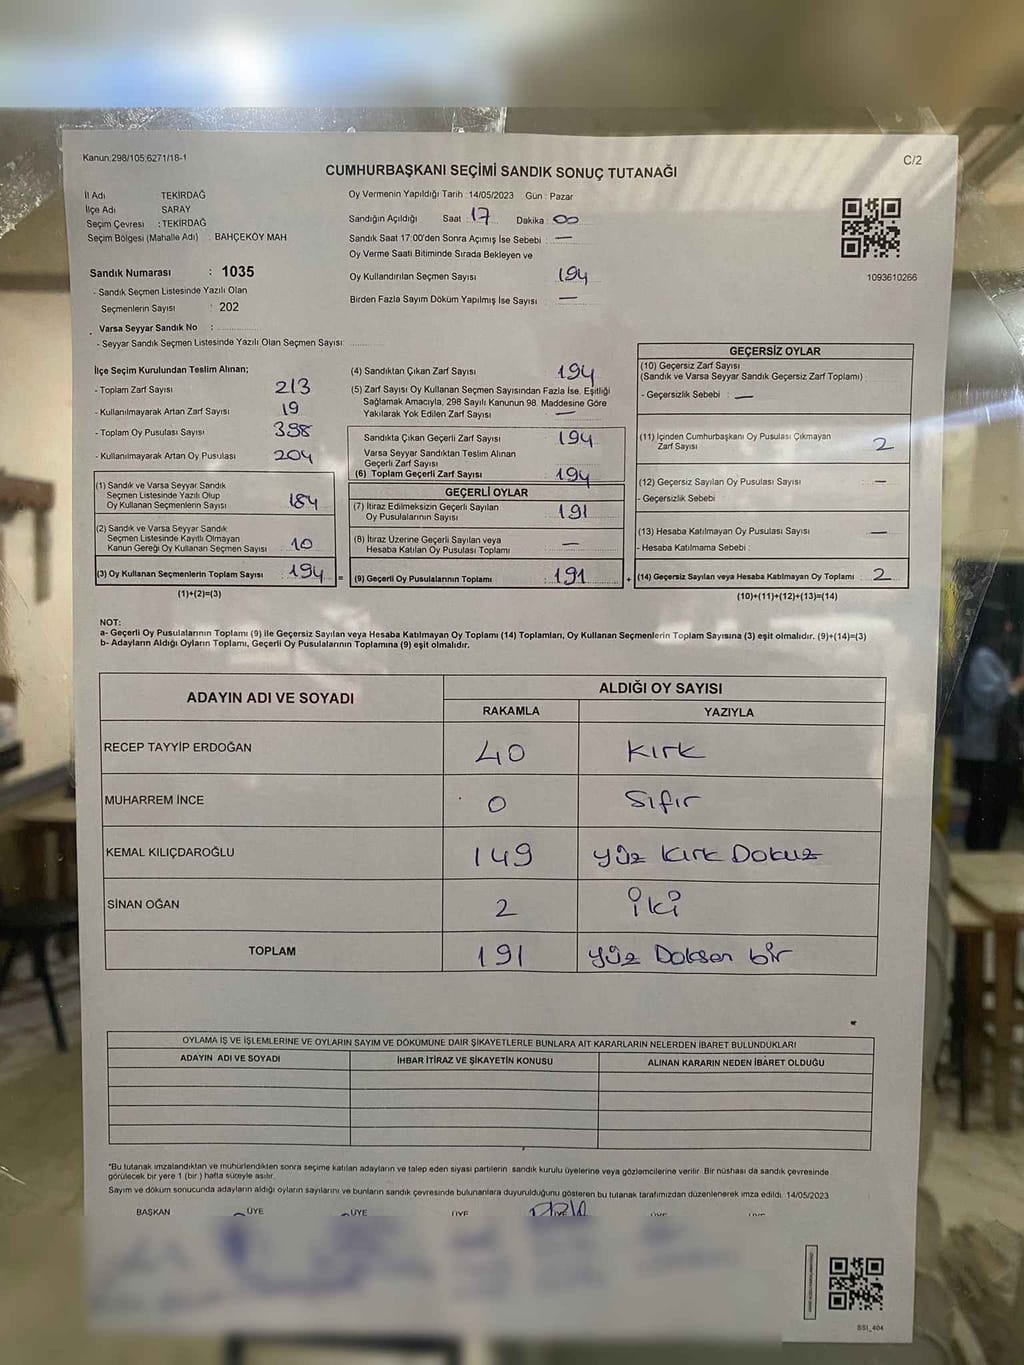 Kanun:298/105;6271/18-1
C/2
CUMHURBAŞKANI SEÇİMİ SANDIK SONUÇ TUTANAĞI
İl Adı TEKİRDAĞ
İlçe Adı SARAY
Seçim Çevresi : TEKİRDAĞ
Seçim Bölgesi (Mahalle Adı) : BAHÇEKÖY MAH
Sandık Numarası : 1035
- Sandık Seçmen Listesinde Yazılı Olan
Seçmenlerin Sayısı : 202
Varsa Seyyar Sandık No :
- Seyyar Sandık Seçmen Listesinde Yazılı Olan Seçmen Sayısı:
Oy Vermenin Yapıldığı Tarih : 14/05/2023 Gün : Pazar
Sandığın Açıldığı Saat : 17 Dakika : 00
Sandık Saat 17:00'den Sonra Açımış İse Sebebi : —
Oy Verme Saati Bitiminde Sırada Bekleyen ve
Oy Kullandırılan Seçmen Sayısı 194
Birden Fazla Sayım Döküm Yapılmış İse Sayısı : —
1093610266
İlçe Seçim Kurulundan Teslim Alınan;
- Toplam Zarf Sayısı 213
- Kullanılmayarak Artan Zarf Sayısı 19
- Toplam Oy Pusulası Sayısı 398
- Kullanılmayarak Artan Oy Pusulası 204
(1) Sandık ve Varsa Seyyar Sandık
Seçmen Listesinde Yazılı Olup
Oy Kullanan Seçmenlerin Sayısı 184
(2) Sandık ve Varsa Seyyar Sandık
Seçmen Listesinde Kayıtlı Olmayan
Kanun Gereği Oy Kullanan Seçmen Sayısı 10
(3) Oy Kullanan Seçmenlerin Toplam Sayısı : 194
(1)+(2)=(3)
=
(4) Sandıktan Çıkan Zarf Sayısı 194
(5) Zarf Sayısı Oy Kullanan Seçmen Sayısından Fazla İse, Eşitliği
Sağlamak Amacıyla, 298 Sayılı Kanunun 98. Maddesine Göre
Yakılarak Yok Edilen Zarf Sayısı —
Sandıkta Çıkan Geçerli Zarf Sayısı 194
Varsa Seyyar Sandıktan Teslim Alınan
Geçerli Zarf Sayısı
(6) Toplam Geçerli Zarf Sayısı 194
GEÇERLİ OYLAR
(7) İtiraz Edilmeksizin Geçerli Sayılan
Oy Pusulalarının Sayısı 191
(8) İtiraz Üzerine Geçerli Sayılan veya
Hesaba Katılan Oy Pusulası Toplamı —
(9) Geçerli Oy Pusulalarının Toplamı : 191
+
GEÇERSİZ OYLAR
(10) Geçersiz Zarf Sayısı
(Sandık ve Varsa Seyyar Sandık Geçersiz Zarf Toplamı)
- Geçersizlik Sebebi : —
(11) İçinden Cumhurbaşkanı Oy Pusulası Çıkmayan
Zarf Sayısı 2
(12) Geçersiz Sayılan Oy Pusulası Sayısı —
- Geçersizlik Sebebi
(13) Hesaba Katılmayan Oy Pusulası Sayısı —
- Hesaba Katılmama Sebebi :
(14) Geçersiz Sayılan veya Hesaba Katılmayan Oy Toplamı : 2
(10)+(11)+(12)+(13)=(14)
NOT:
a- Geçerli Oy Pusulalarının Toplamı (9) ile Geçersiz Sayılan veya Hesaba Katılmayan Oy Toplamı (14) Toplamları, Oy Kullanan Seçmenlerin Toplam Sayısına (3) eşit olmalıdır. (9)+(14)=(3)
b- Adayların Aldığı Oyların Toplamı, Geçerli Oy Pusulalarının Toplamına (9) eşit olmalıdır.
ADAYIN ADI VE SOYADI
ALDIĞI OY SAYISI
RAKAMLA YAZIYLA
RECEP TAYYİP ERDOĞAN 40 Kırk
MUHARREM İNCE 0 Sıfır
KEMAL KILIÇDAROĞLU 149 yüz Kırk Dokuz
SİNAN OĞAN 2 İki
TOPLAM 191 yüz Doksan bir
OYLAMA İŞ VE İŞLEMLERİNE VE OYLARIN SAYIM VE DÖKÜMÜNE DAİR ŞİKAYETLERLE BUNLARA AİT KARARLARIN NELERDEN İBARET BULUNDUKLARI
ADAYIN ADI VE SOYADI İHBAR İTİRAZ VE ŞİKAYETİN KONUSU ALINAN KARARIN NEDEN İBARET OLDUĞU
*Bu tutanak imzalandıktan ve mühürlendikten sonra seçime katılan adayların ve talep eden siyasi partilerin sandık kurulu üyelerine veya gözlemcilerine verilir. Bir nüshası da sandık çevresinde
görülecek bir yere 1 (bir) hafta süreyle asılır.
Sayım ve döküm sonucunda adayların aldığı oyların sayılarını ve bunların sandık çevresinde bulunanlara duyurulduğunu gösteren bu tutanak tarafımızdan düzenlenerek imza edildi. 14/05/2023
BAŞKAN ÜYE ÜYE ÜYE ÜYE ÜYE ÜYE
SSI_404